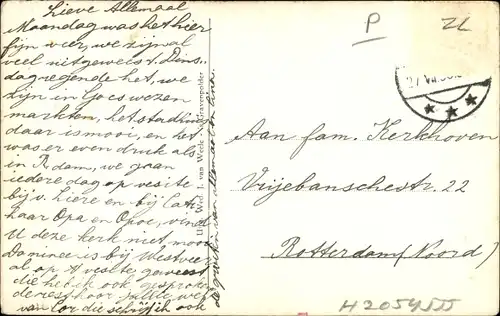 Lieve Allemaal
Maandag was het hier
fijn weer, we zijn al
veel uitgeweest. Dins-
dag regende het, we
zijn in Goes wezen
markten, het stadhuis
daar is mooi, en het
was er even druk als
in R.dam, we gaan
iedere dag op vesite
bij v. Liere en bij Cath.
haar Opa en Opoe, vind
U deze kerk niet mooi
Dominee is bij Westveer
al op t vesite geweest
die heb ik ook gesproken
de rest hoor jullie wel
van Cor die schrijf ik ook
de groeten van Allemaal
Uitg. Wed. J. van Weele, 's-Gravenpolder
P
ZL
27 VII
Aan fam. Kerkhoven
Vrijebanschestr. 22
Rotterdam (Noord)
H2054